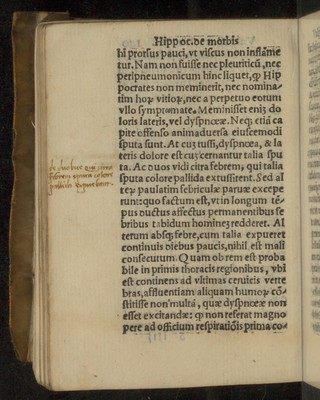 Hippoc. de morbis
hi prorsus pauci, vt viscus non inflãme
tur. Nam non fuisse nec pleuriticũ, nec
peripneumonicum hinc liquet, ꝙ Hip
pocrates non meminerit, nec nomina-
tim hoꝝ vitioꝝ, nec a perpetuo eorum
vllo symptomate. Meminisset enim do
loris lateris, vel dyspnœæ. Neqꝫ etiã ca
pite offenso animaduersa eiuscemodi
sputa sunt. At cuȝ tussi, dyspnœa, & la
teris dolore est cuȝ cernantur talia spu
ta. Ac duos vidi citra febrem, qui talia
sputa colore pallida extussirent. Sed al
teꝝ paulatim febriculæ paruæ excepe
runt: quo factum est, vt in longum tẽ-
pus ductus affectus permanentibus fe
bribus tabidum hominẽ redderet. Al
terum absqꝫ febre, cum talia expueret
continuis diebus paucis, nihil est mali
consecutum. Quam ob rem est proba
bile in primis thoracis regionibus, vbi
est continens ad vltimas ceruicis verte
bras, affluentiam aliquam humoꝝ cõ-
stitisse non multã, quæ dyspnœæ non
esset excitandæ: ꝙ non referat magno
pere ad officium respiratiõis prima co-
de duobus qui citra
febrem sputa colore
pallida expuebant.